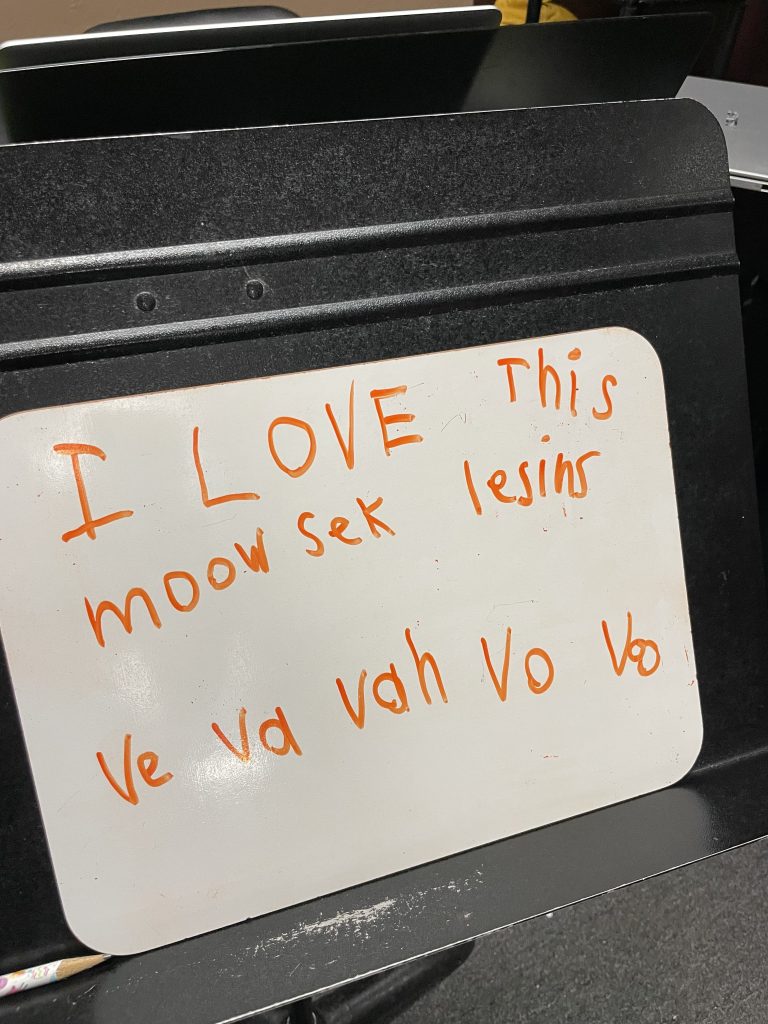 I LOVE This
moow sek lesins
Ve va vah Vo Voo